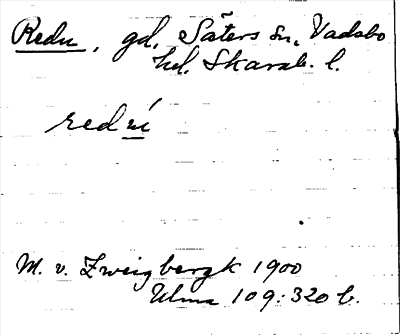 Redu, gd. Säters sn, Vadsbo
hd. Skarab. l.
redú
M. v. Zweigbergk 1900
Ulma 109:320 b.